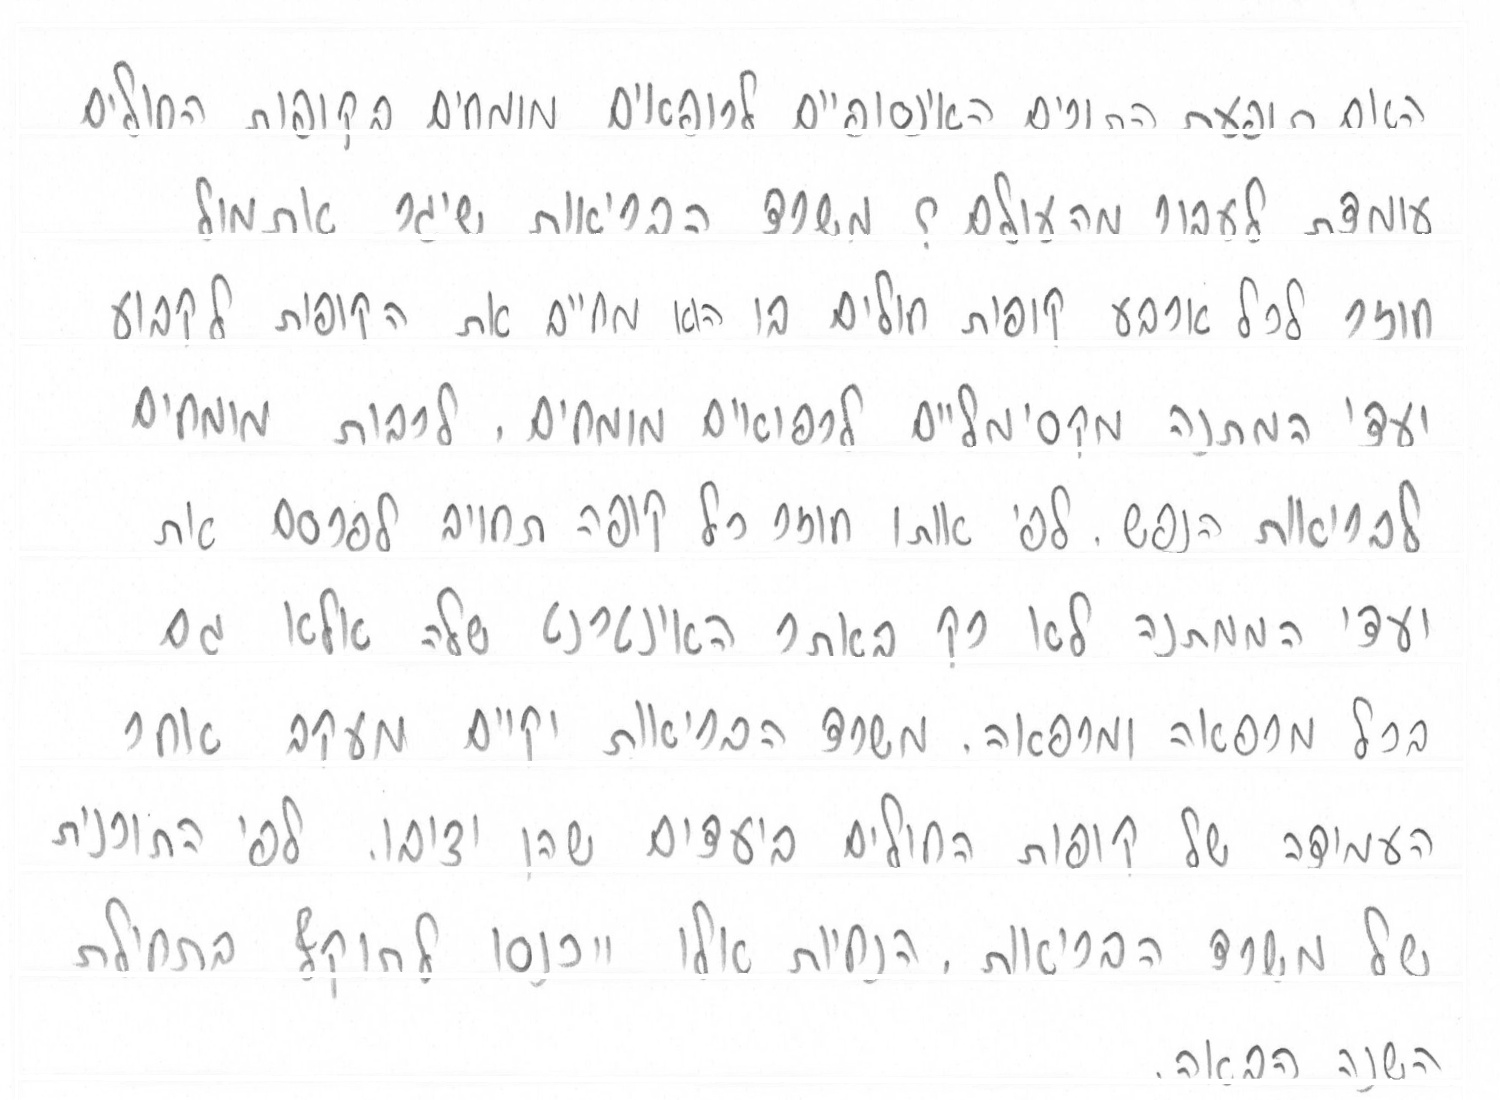 האם תופעת התורים האינסופיים לרופאים מומחים בקופות החולים
עומדת לעבור מהעולם? משרד הבריאות שיגר אתמול
חוזר לכל ארבע קופות חולים בו הוא מחייב את הקופות לקבוע
יעדי המתנה מקסימליים לרפואיים מומחים, לרבות מומחים
לבריאות הנפש. לפי אותו חוזר כל קופה תחויב לפרסם את
יעדי הממתנה לא רק באתר האינטרנט שלה אלא גם
בכל מרפאה ומרפאה. משרד הבריאות יקיים מעקב אחר
העמידה של קופות החולים ביעדים שהן יציבו. לפי התוכנית
של משרד הבריאות, הנחיות אלו ייכנסו לתוקף בתחילת
השנה הבאה.